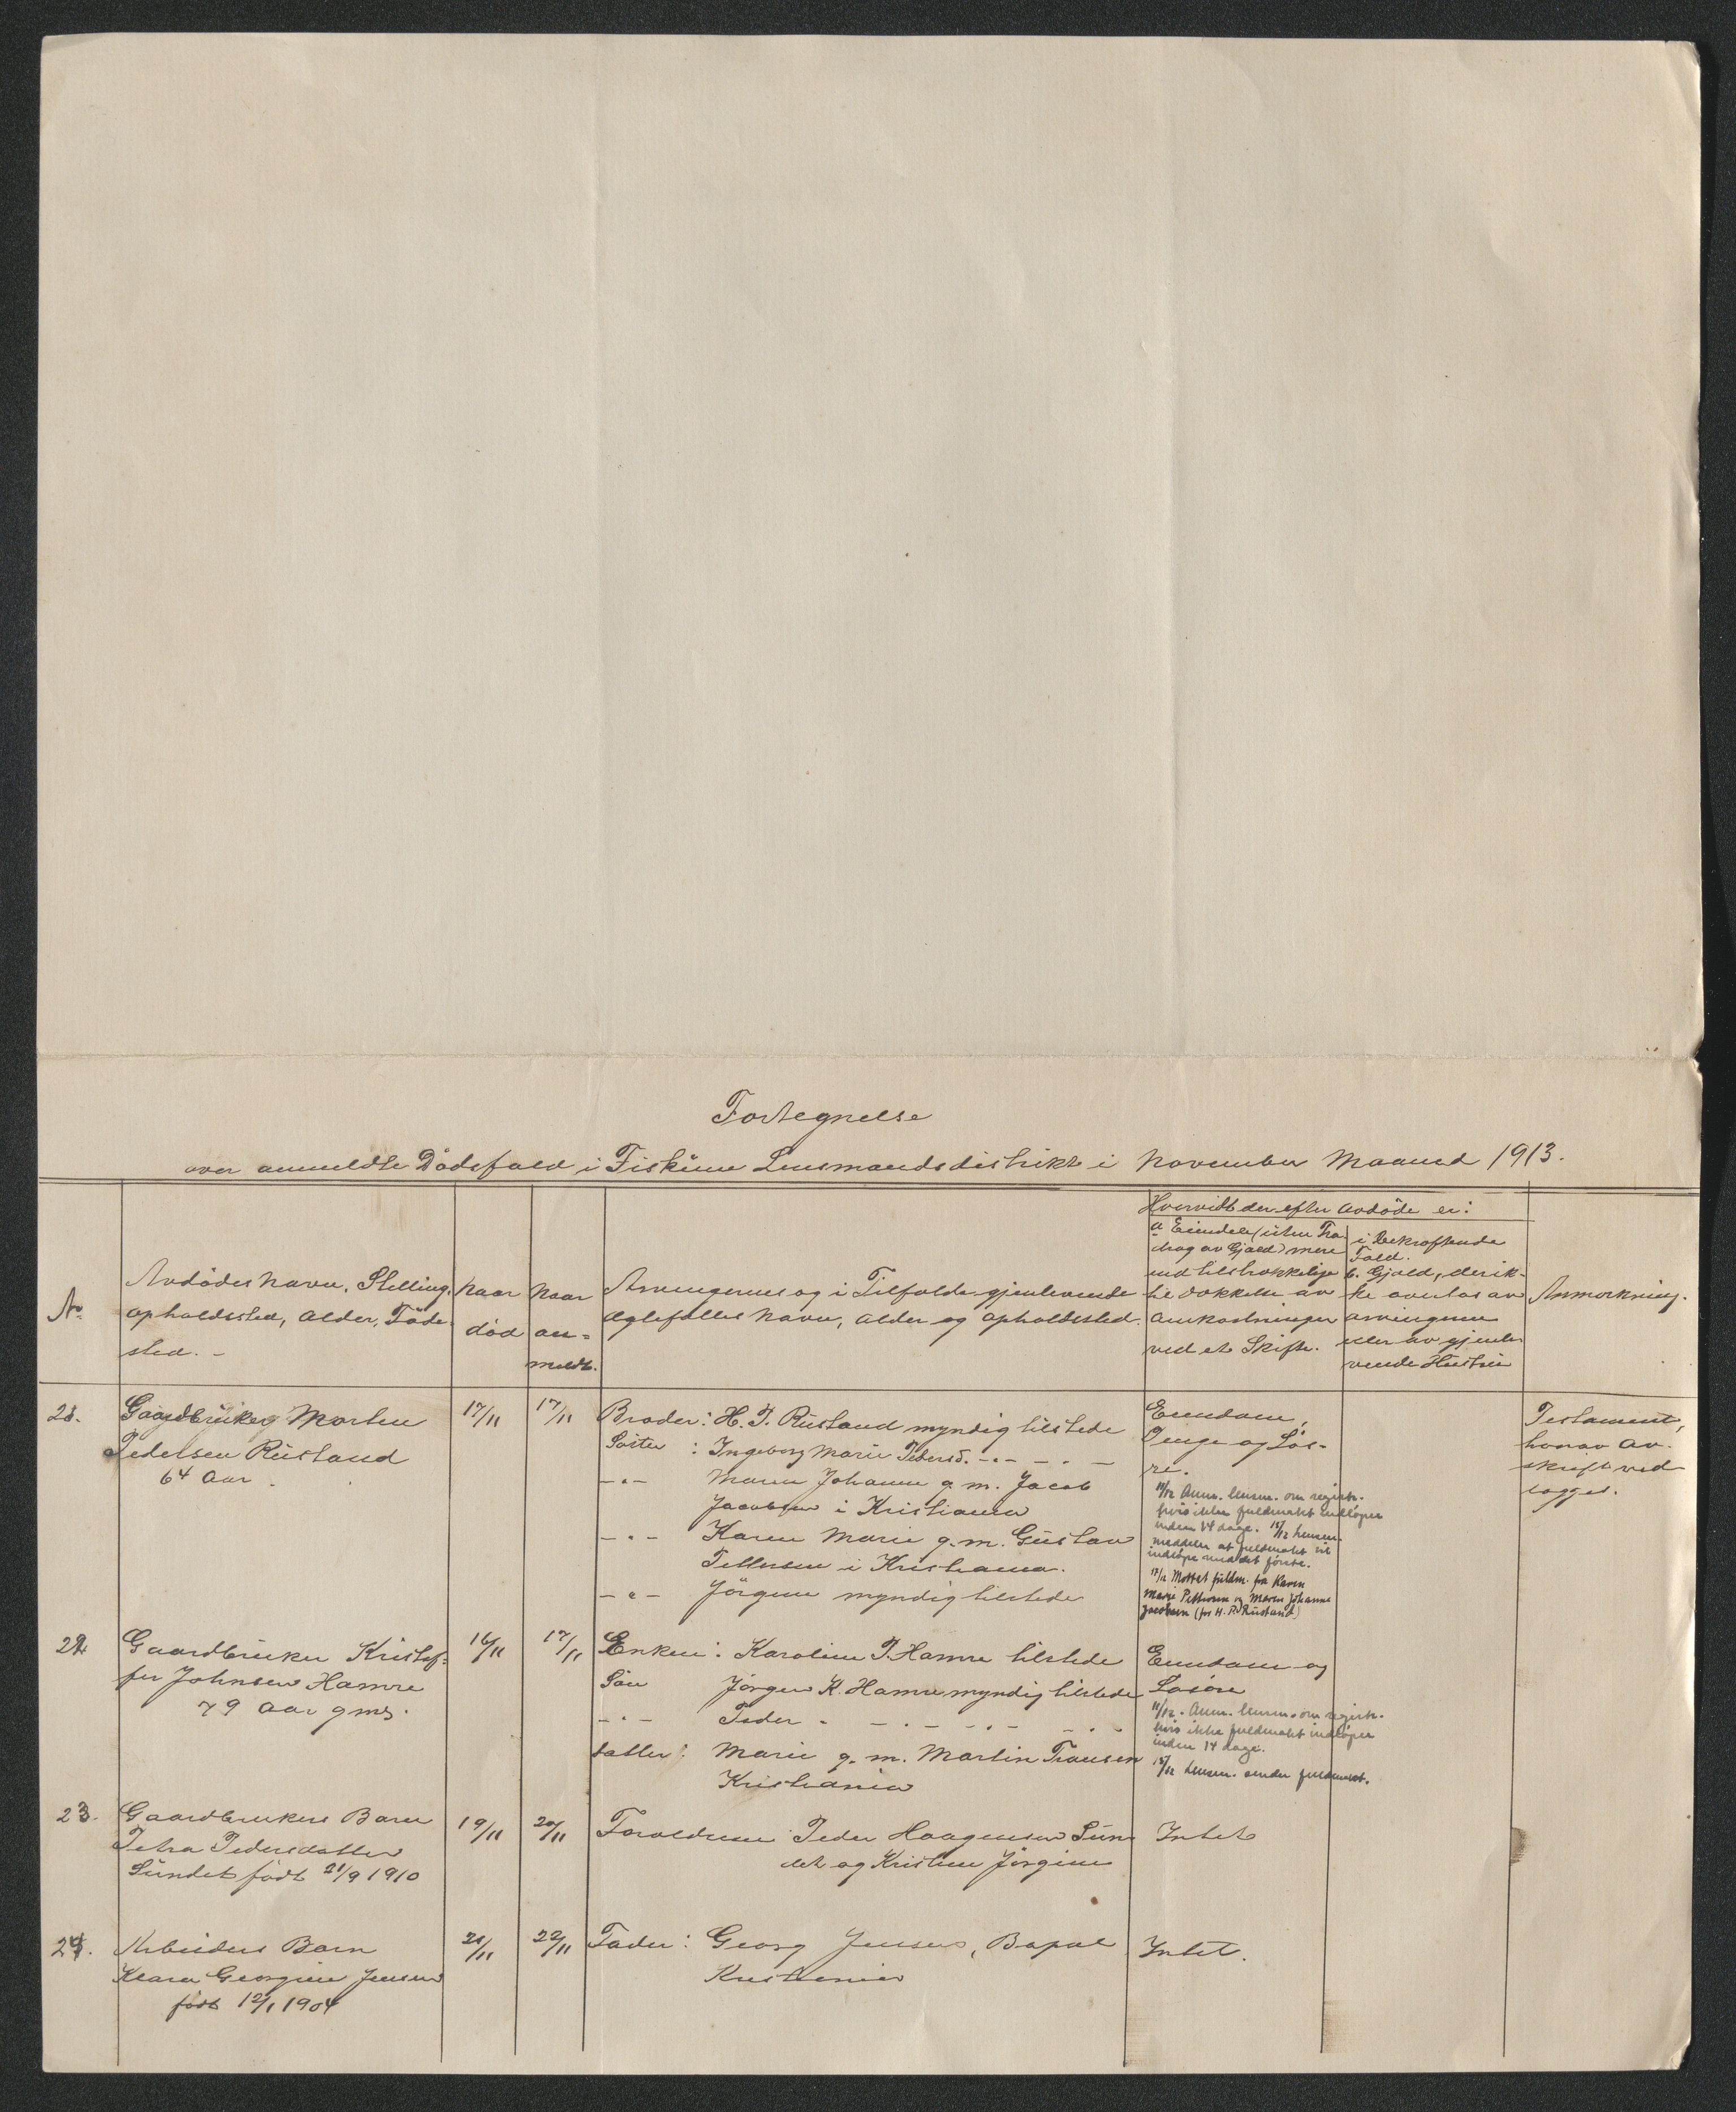 Fortegnelse
over anmeldte Dödsfald i Fiskum Lensmandsdistrikt i November Maaned 1913.
No
Avdödes Navn, Stilling,
opholdssted, Alder, Föde
sted. -
Naar
död
Naar
an=
meldt.
Arvingernes og i Tilfælde gjenlevende
Ægtefælles Navn, Alder og Opholdssted.
Hvorvidt der efter Avdöde er:
a Eiendele (uten Fra
drag av Gjæld) mere
end tilstrækkelige
til Dækkelse av
Omkostninger
ved et Skifte.
i Bekræftende
Fald.
b. Gjæld, der ik-
ke overtas av
arvingerne
eller av gjenle
vende Hustru
Anmerkning.
21.
Gaardbruker Morten
Pedersen Rustand
64 Aar
17/11
17/11
Broder: H. P. Rustand myndig tilstede
Söster : Ingeborg Marie Pedersd. -"- - " -
-"- Maren Johanne g. m. Jacob
Jacobsen i Kristiania
-"- Karen Marie g. m. Gustav
i Kristiania.
-"- Jörgine myndig tilstede
Eiendom,
Penge og Løs-
re.
11/12 Anm. lensm. om registr.
hvis ikke fuldmakt indløper
inden 14 dage. 15/12 Lensm.
meddeler at fuldmakt vil
indløpe med det første.
17/12 Mottat fuldm. fra Karen
Marie og Maren Johanne
Jacobsen (for H. P. Rustand)
Testament,
hvorav Av-
skrift ved
lægges.
22
Gaardbruker Kristof-
fer Johnsen Hamre
79 Aar gml.
16/11
17/11
Enken: Karoline P. Hamre tilstede
Sön Jörgen K. Hamre myndig tilstede
-"- Peder " - " - -"- - " -
Datter: Marie g. m. Martin Fransen
Kristiania
Eiendom og
Løsöre
11/12. Anm. lensm. om registr.
hvis ikke fuldmakt indløper
inden 14 dage.
15/12 Lensm. sender fuldmakt.
23.
Gaardbrukers Barn
Petra Pedersdatter
Sundet födt 21/9 1910
19/11
20/11
Foreldrene Peder Haagensen Sun
det og Kristine Jörgine
Intet
24.
Arbeiders Barn
Klara Georgine Jensen
födt 12/1 1904
21/11
22/11
Fader: Georg Jensen, Bapal
Kristiania
Intet.